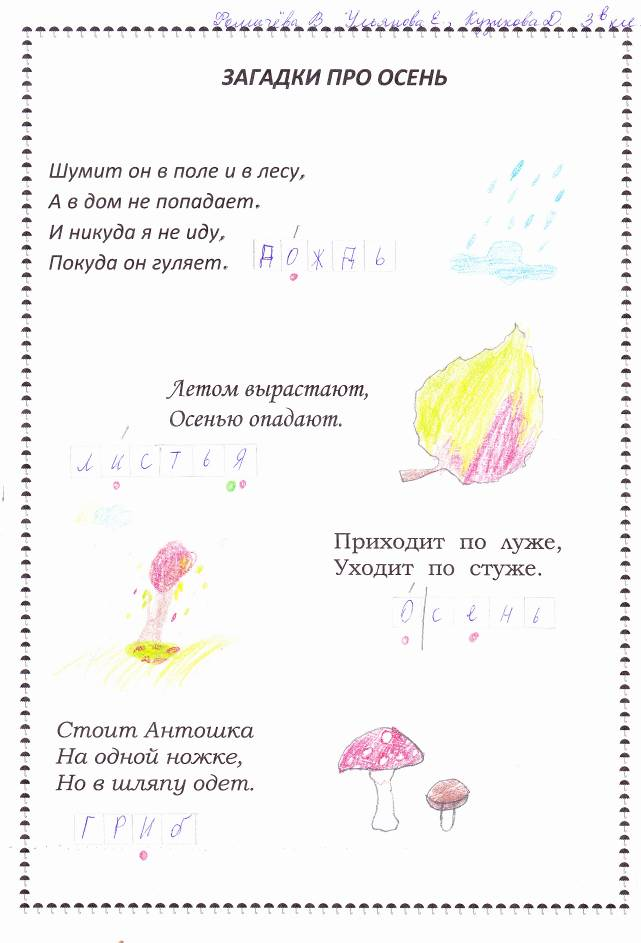 Ульянова Е., Кузикова Д. 3 в кл
ЗАГАДКИ ПРО ОСЕНЬ
Шумит он в поле и в лесу,
А в дом не попадает.
И никуда я не иду,
Покуда он гуляет.
ДОЖДЬ
Летом вырастают,
Осенью опадают.
ЛИСТЬЯ
Приходит по луже,
Уходит по стуже.
Осень
Стоит Антошка
На одной ножке,
Но в шляпу одет.
ГРИБ